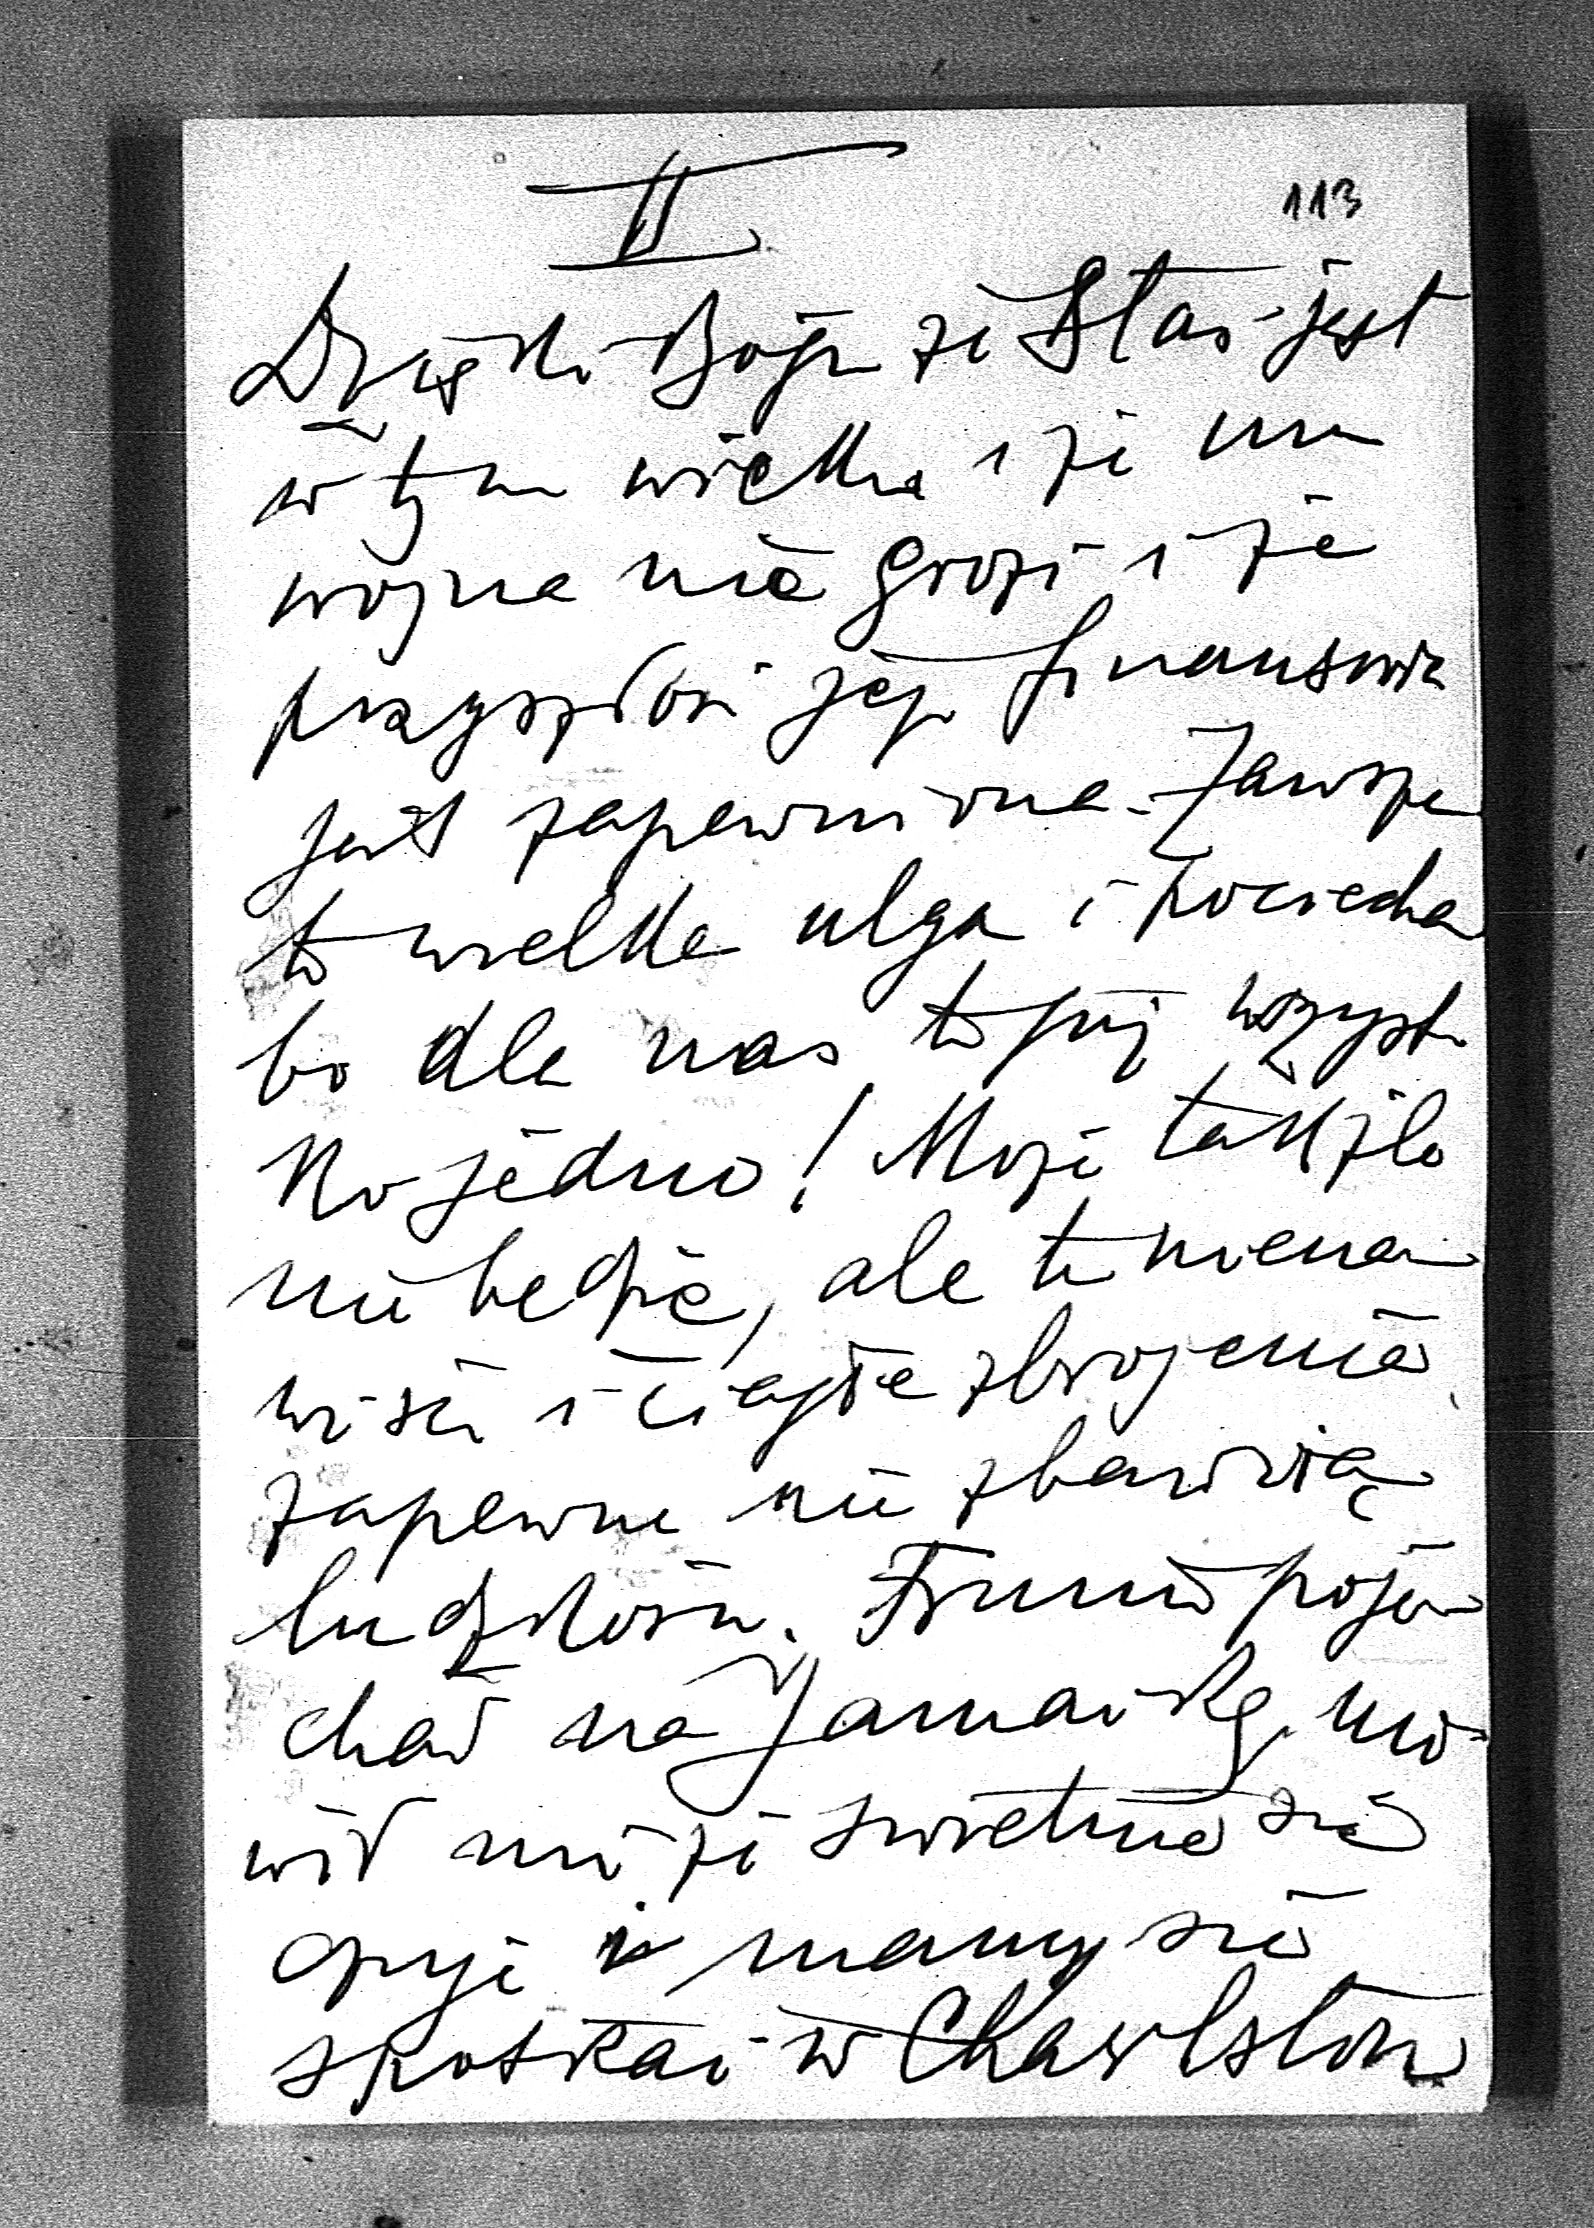 II
113
Dzięki Bogu że Staś jest
w tym wieku i że mu
wojna nie grozi i że
przyszłość jej finansowa
jest zapewniona. Zawsze
to wielka ulga i pociecha
bo dla nas to już wszyst
ko jedno! Może tak źle
nie będzie, ale ta niena
wiść i ciągłe zbrojenia
zapewne nie zbawią
ludzkości. Franio poje
chał na Jamaikę, mó
wił mi że świetnie się
czuje i mamy się
spotkać w Charlston